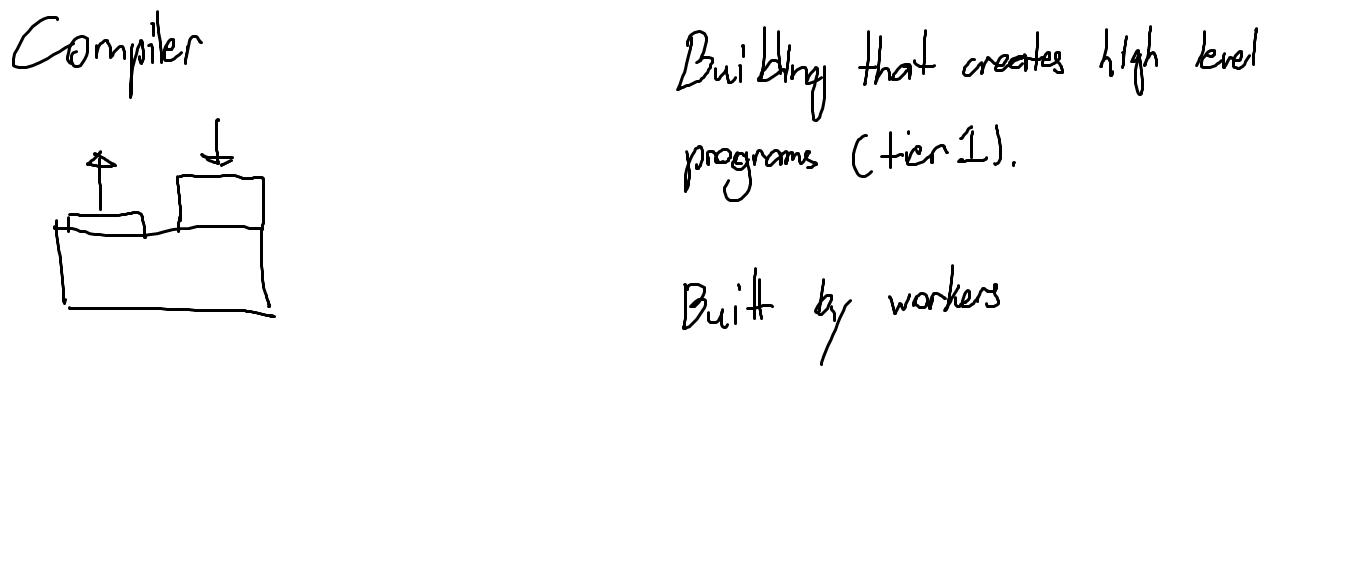 Compiler
Building that creates high level
programs (tier 1).
Built by workers